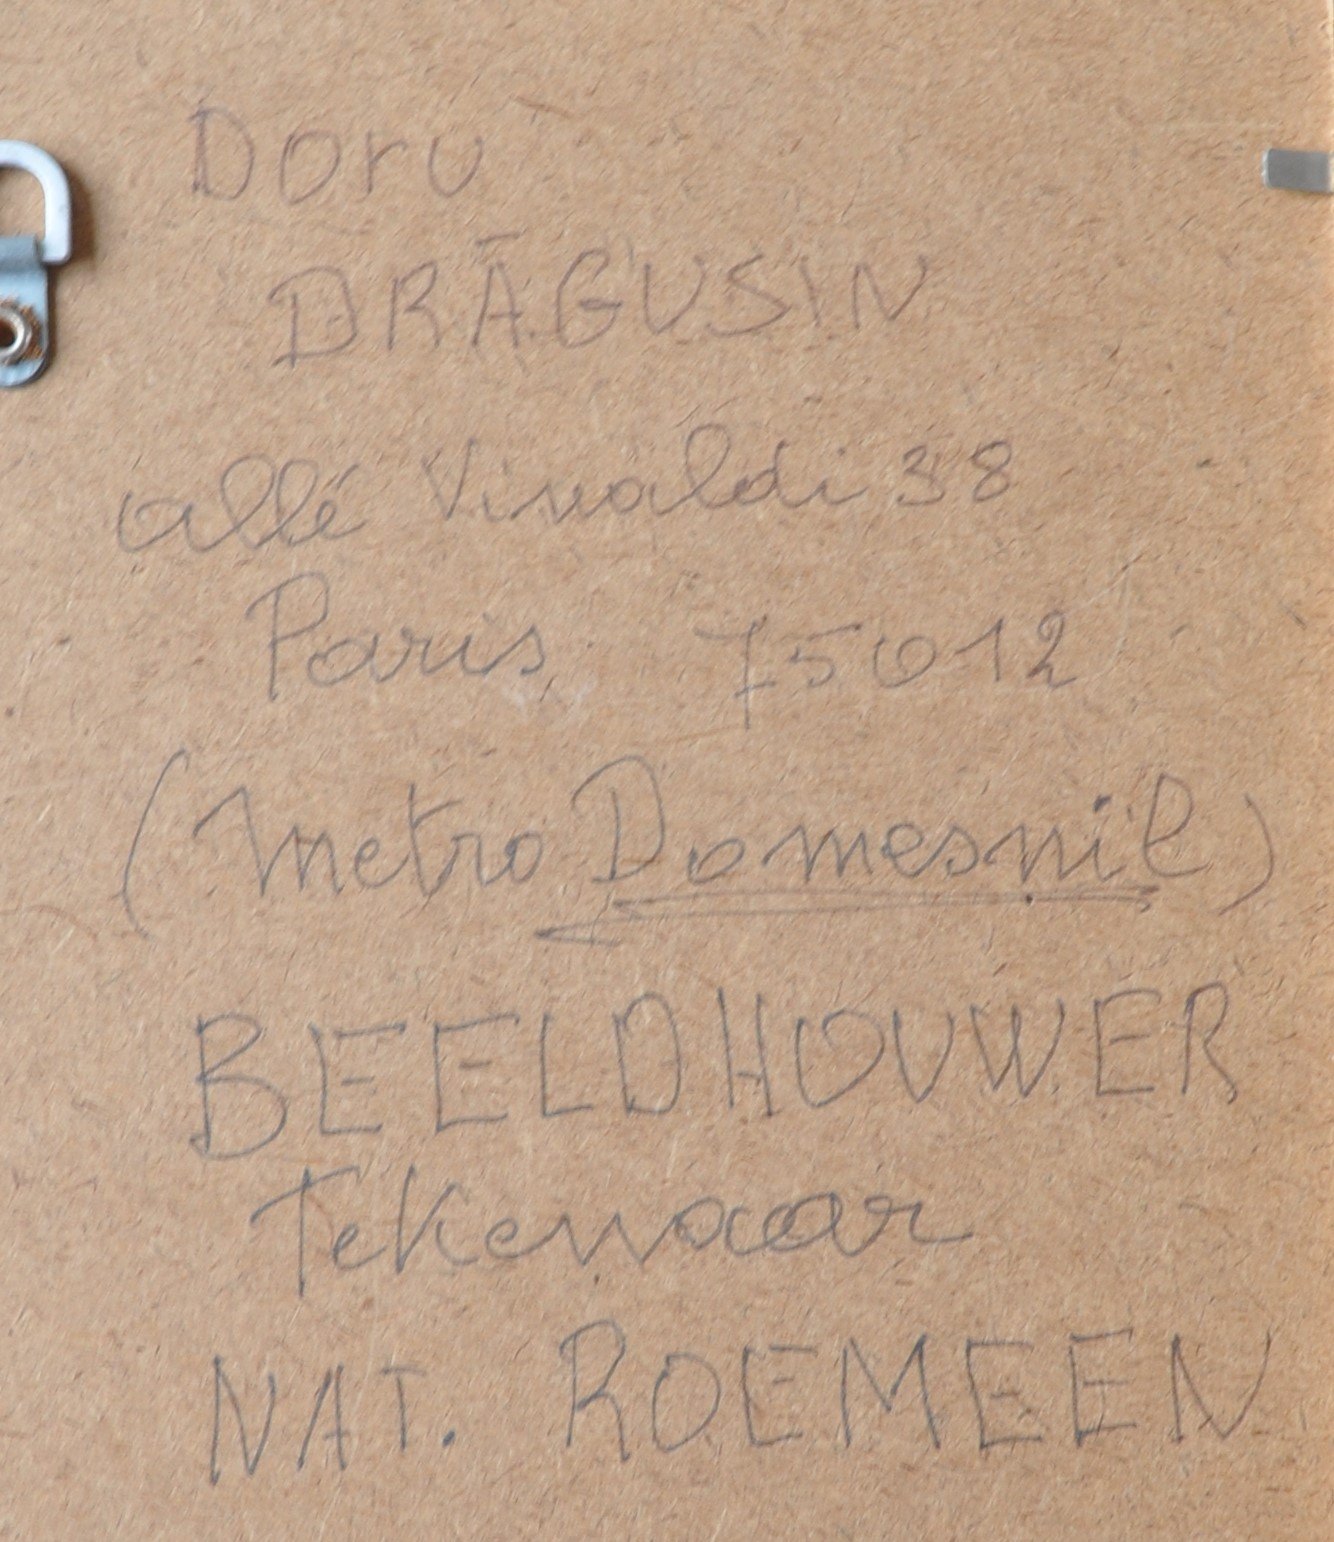 Doru
DRĂGUSIN
allé Vivaldi 38
Paris 75012
(metro Domesnil)
BEELDHOUWER
Tekenaar
NAT. ROEMEEN